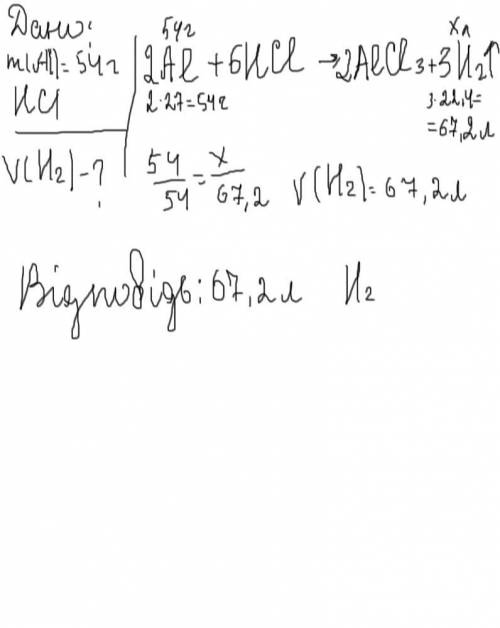 Дано:
m(Al)=54г
HCl
V(H2)-?
54г xл
2Al + 6HCl → 2AlCl3 + 3H2↑
2·27=54г 3·22,4=
=67,2л
54/54 = x/67,2 V(H2)=67,2л
Відповідь: 67,2л H2